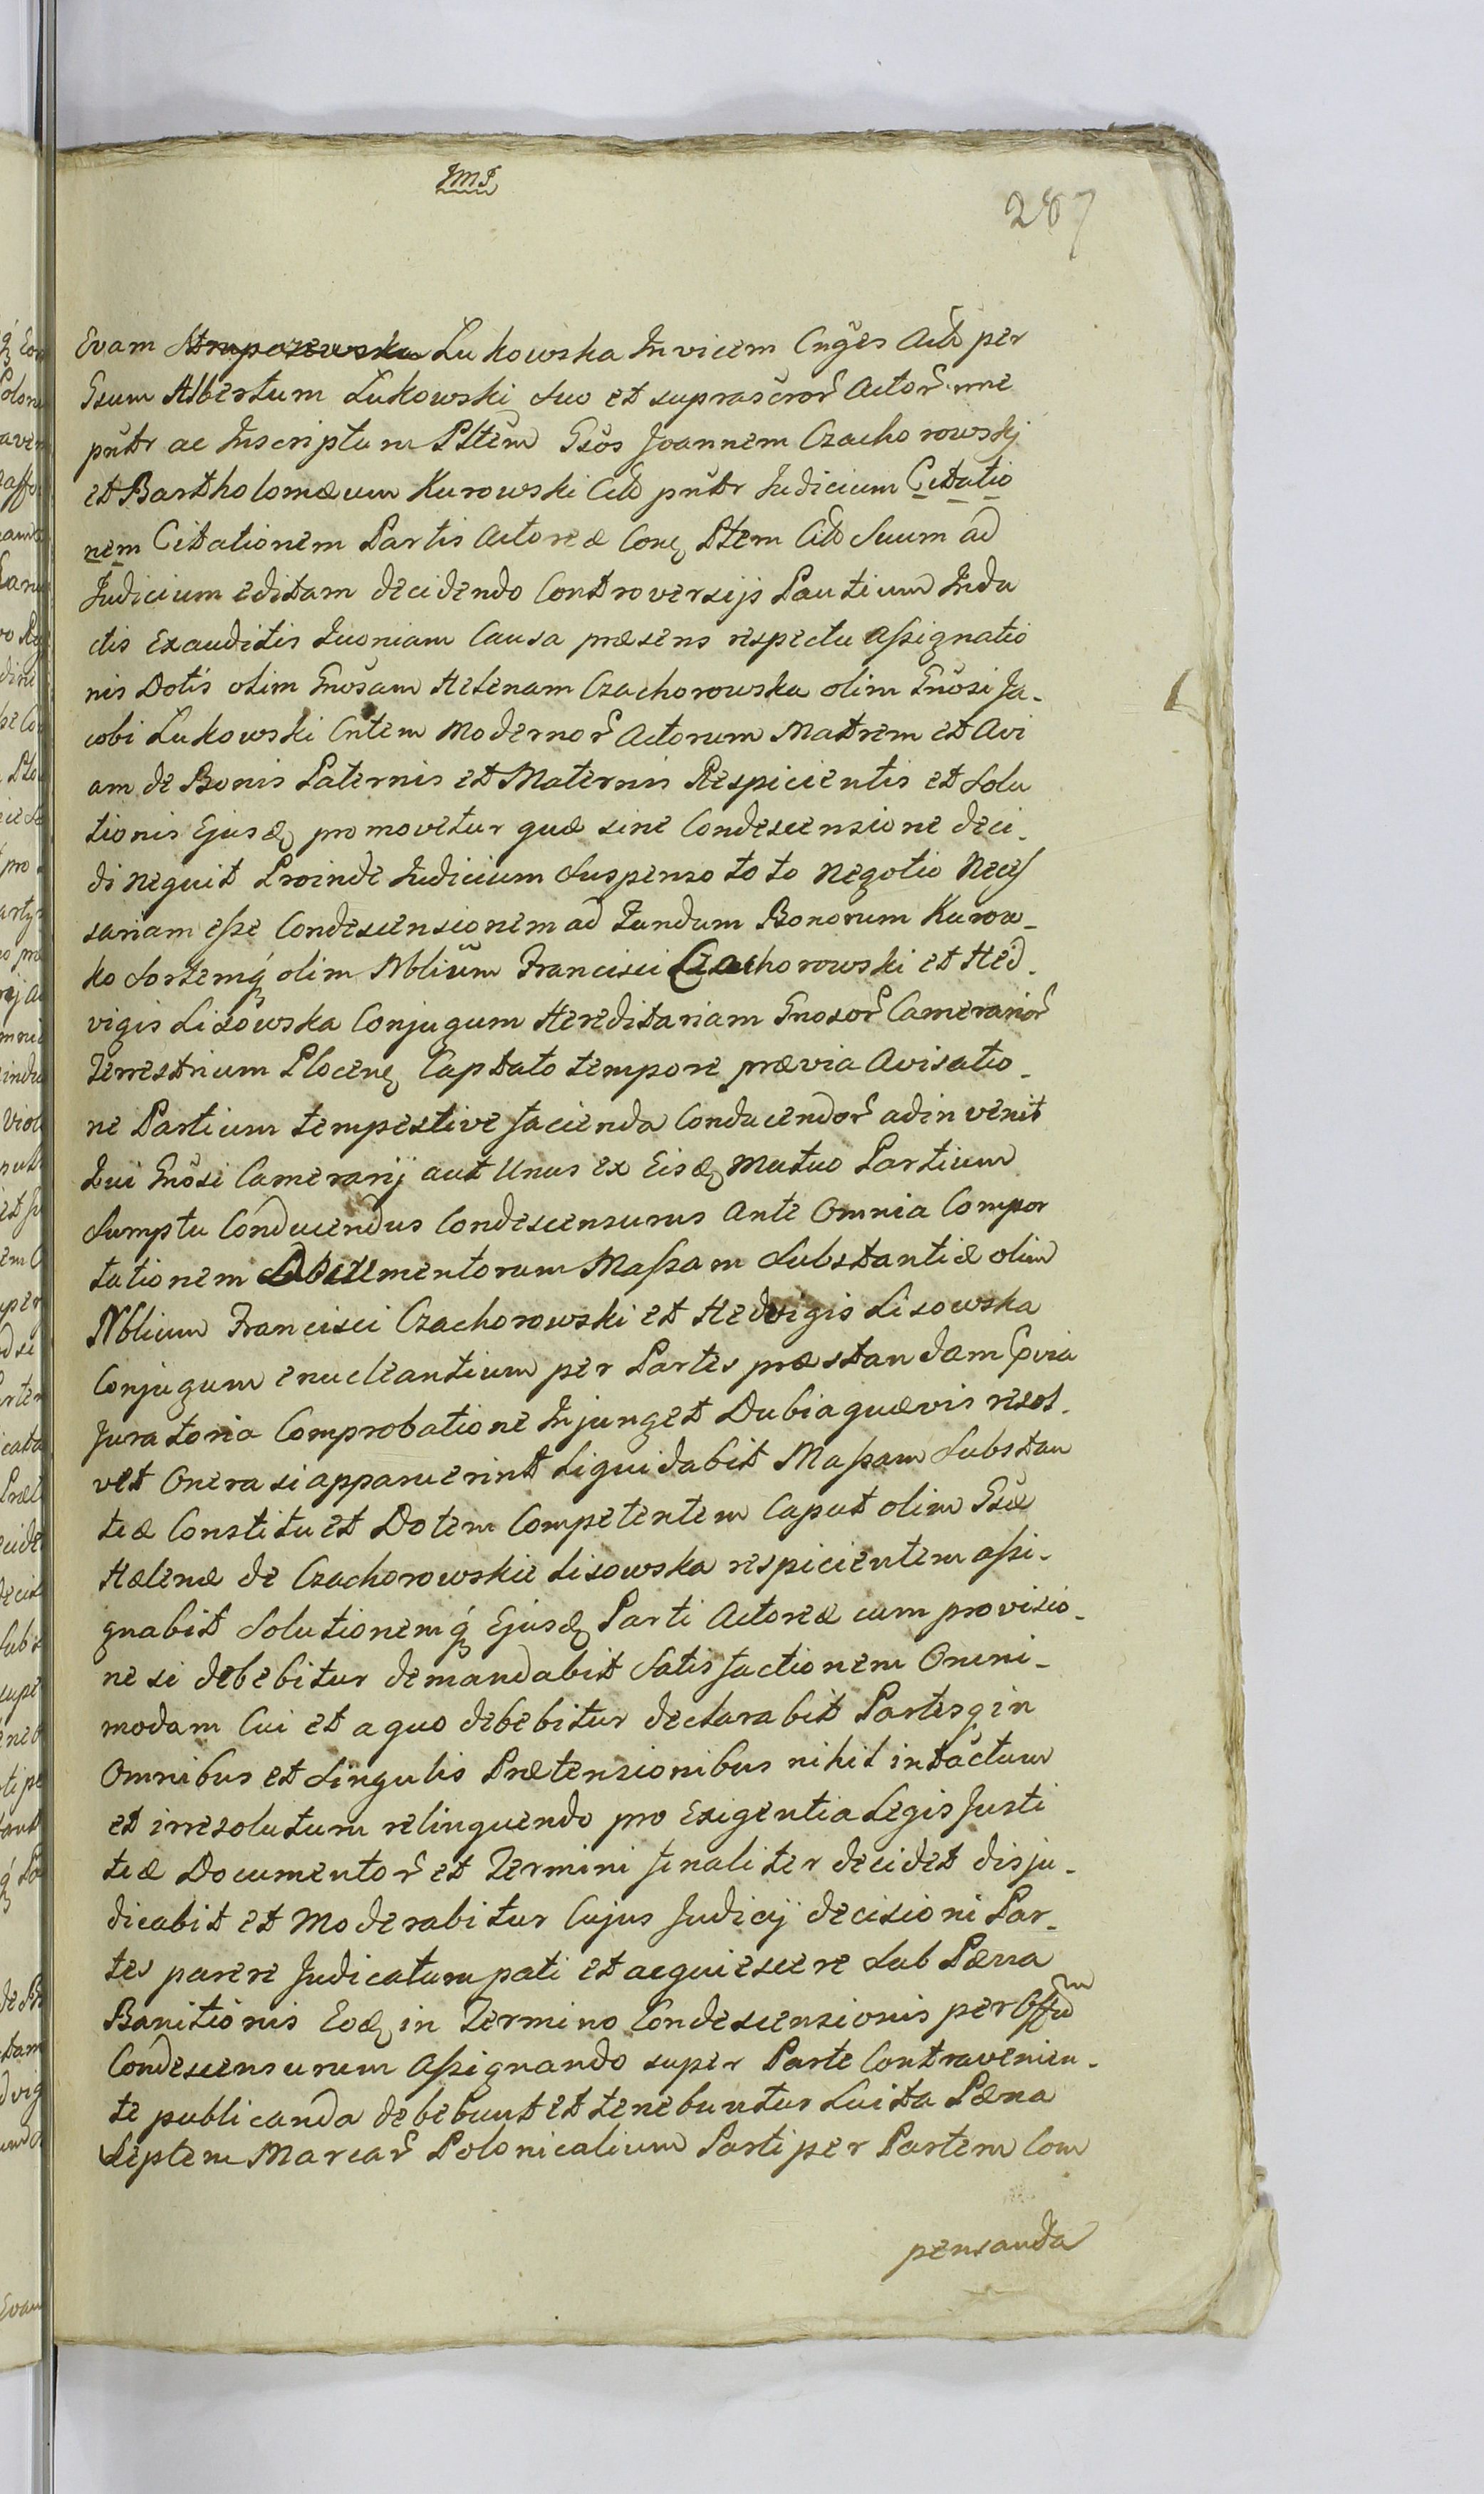 JMJ
287
Evam Strupczewska Lukowska Invicem Cnges Actb per
Gsum Albertum Lukowski Suo et suprascror Actor nne
pntr ac Inscriptum Pltem Gsos Joannem Czachorowskj
et Bartholomæum Kurowski Citb pntr Judicium Citatio
nem Citationem Partis Actoreæ Conq Ptem Citb Suum ad
Judicium editam decidendo Controversijs Pautium Indu
ctis Exauditis Quoniam Causa præsens respectu Assignatio
nis Dotis olim Gnosam Helenam Czachorowska olim Gnosi Ja-
cobi Lukowski Cntem Modernor Actorum Matrem et Avi
am de Bonis Paternis et Maternis Respicientis et Solu
tionis Ejusdq promovetur quæ sine Condescensione deci-
di nequit Proinde Judicium Suspenso toto Negotio Necess
sariam esse Condescensionem ad Fundum Bonorum Kurow-
ko Sortemq olim Nblium Francisci Czachorowski et Hed-
vigis Lisowska Conjugum Hereditariam Gnosor Camerarior
Terrestrium Plocenq Captato tempore prævia Avisatio-
ne Partium tempestive facienda Conducendor adinvenit
Qui Gnosi Camerarij aut Unus ex Eisdq Mutuo Partium
Sumptu Conducendus Condescensurus Ante Omnia Compor
tationem Documentorum Massam Substantiæ olim
Nblium Francisci Czachorowski et Hedvigis Lisowska
Conjugum enucleantium per Partes præstandam prvia
Juratoria Comprobatione Injunget Dubia quævis resol-
vet Onera si apparuerint Liquidabit Massam Substan
tiæ Constituet Dotem Competentem Caput olim Gsæ
Hælenæ de Czachorowskie Lisowska respicientem assi-
gnabit Solutionemq Ejusdq Parti Actoreæ cum provisio-
ne si debebitur demandabit Satisfactionem Omni-
modam Cui et a quo debebitur declarabit Partesq in
Omnibus et Singulis Prætensionibus nihil intactum
et irresolutum relinquendo pro Exigentia Legis Justi
tiæ Documentor et Termini finaliter decidet disju-
dicabit et Moderabitur Cujus Judicij decisioni Par-
tes parere Judicatum pati et acquiescere Sub Pæna
Banitionis Eodq in Termino Condescensionis per Offum
Condescensurum Assignando super Parte Contravenien-
te publicanda debebunt et tenebuntur Luita Pæna
Septem Marcar Polonicalium Parti per Partem Com
pensanda